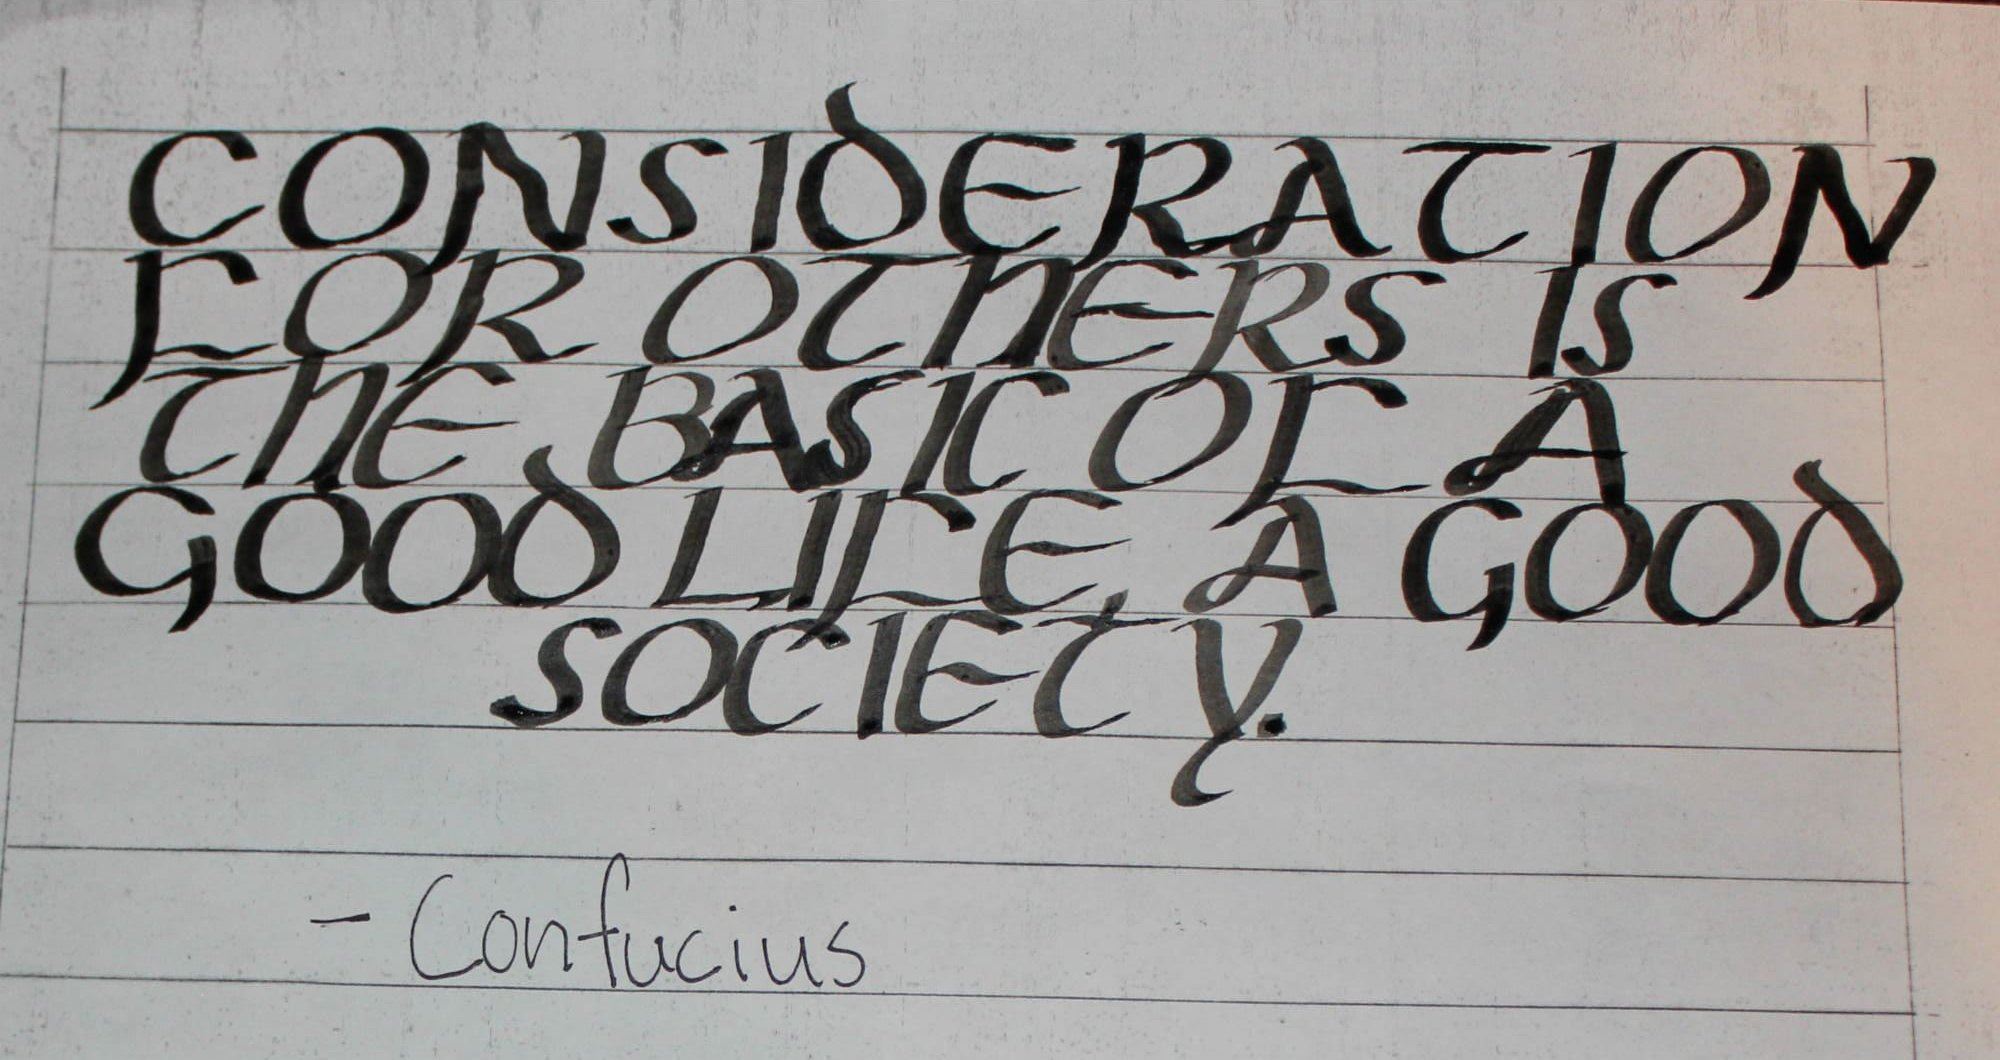 CONSIDERATION
FOR OTHERS IS
THE BASIC OF A
GOOD LIFE, A GOOD
SOCIETY.
- Confucius